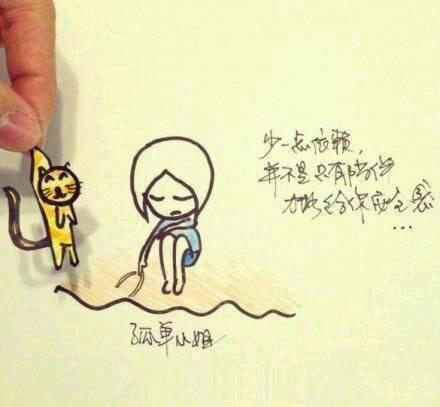 少一点依赖,
并不是只有陪伴
才能给你安全感
...
孤单小姐